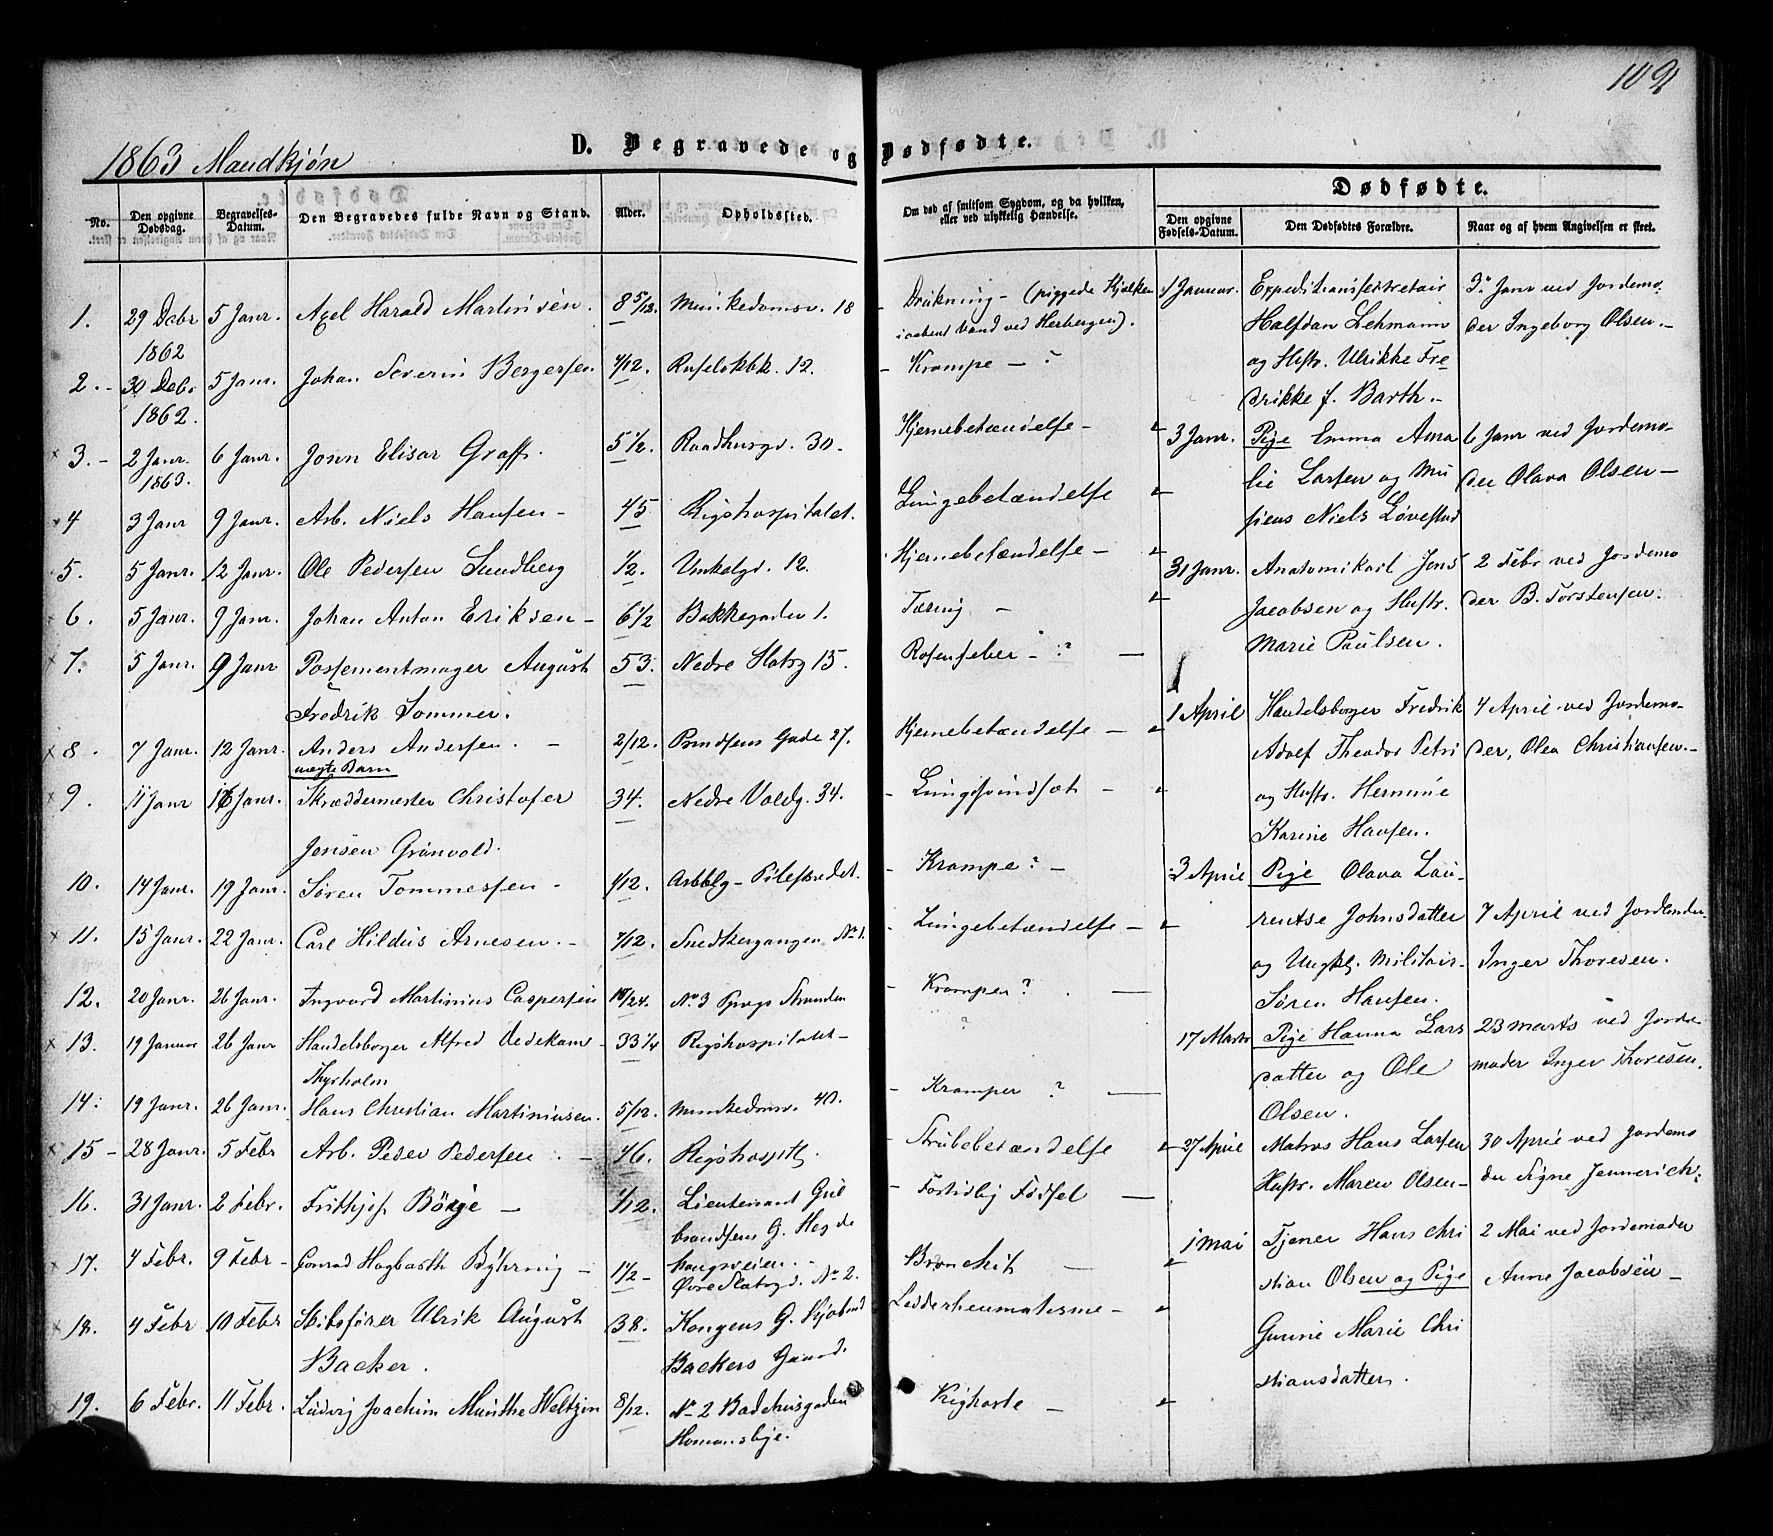 102
1863 Mandkjøn
D. Begravede og Dødfødte.
Dødfødte.
No.
Den opgivne Dødsdag.
Begravelses-Datum.
Den Begravedes fulde Navn og Stand.
Alder.
Opholdssted.
Om død af smitsom Sygdom, og da hvilken, eller ved ulykkelig Hændelse.
Den opgivne Fødsels-Datum.
Den Dødfødtes Forældre.
Naar og af hvem Angivelsen er skeet.
1. 29 Debr 1862 5 Janr. Axel Harald Martinsen. 8 5/12. Munkedamsv. 18 - Drukning - (piggede Kjælken
i aabent Vand ved Herbergen).
2. - 30 Debr 1862. 5 Janr. Johan Severin Bergersen Ruseløkbk. 12. - Krampe - ?
3. - 2 Janr. 1863. 6 Janr. Jonn Elisar Graff. 5 1/2. Raadhusgd. 30. Hjernebetændelse -
4 3 Janr 9 Janr. Arb. Niels Hansen - 45 Rigshospitalet. Lungebetændelse
5. 5 Janr. 12 Janr. Ole Pedersen Sundberg 1/2. Vinkelgd. 12. Hjernebetændelse -
6. 5 Janr. 9 Janr. Johan Anton Eriksen - 6 1/2 Bakkegaden 1. Tæring -
7. 5 Janr. 9 Janr Possementmager August
Fredrik Sommer. 53. Nedre Slotsg 15. Rosenfeber - ? -
8. 7 Janr. 12 Janr. Anders Andersen. -
uægte Barn 2/12. Prindsens Gade 27. Hjernebetændelse -
9. 11 Janr 16 Janr. Skræddermester Christofer
Jensen Grönvold. 34. Nedre Voldg. 34. - Lungesvindsot -
10. 14 Janr. 19 Janr. Søren Tommessen - 1/12. Arbblg - Pilestrædet. - Krampe ? -
11. 15 Janr. 22 Janr. Carl Hildus Arnesen. - 7/12. Snedkergangen No 1. - Lungebetændelse -
12. 20 Janr. 26 Janr. Ingvard Martinius Caspersen No 3 Pipvgs Stranden - Kramper ? -
13. 19 Januar 26 Janr Handelsborger Alfred Vedekam
Thyrholm 33 1/4 Rigshospitalet - ?
14. 19 Janr. 26 Janr. Hans Christian Martiniusen. 5/12. Munkedamsv. 40. - Kramper ? -
15 - 28 Janr. 5 Febr Arb. Peder Pedersen. - 46. Rigshospitl. - Strubebetændelse
16. 31 Janr. 2 Febr. Frithjof Börje - 1/12. Lieutenant Gul
brandsens G. Hegde
haugsveien. - - Fortidlig Fødsel -
17. 4 Febr. 9 Febr - Conrad Hagbarth Bÿhring - 1 1/2 - Øvre Slotsgd. No 2. Bronchit -
18. 4 Febr 10 Febr Skibsfører Ulrik August
Backer. 38. Kongens G. Skjolund
Backers Gaard. Ledderheumatisme -
19. 6 Febr. 11 Febr. Ludvig Joachim Munthe Weltzin 8/12. No 2 Badehusgaden
Homansbye. Kighoste -
1 Januar. Expeditionssekretair
Halfdan Lehmann
og Hustr. Ulrikke Fre
drikke f. Barth. -
3. Janr ved Jordemo
der Ingeborg Olsen. -
3 Janr. Pige Emma Ama
lie Larsen og Mu
sicus Niels Løvestad
6 Janr ved Jordemo-
der Olava Olsen -
31 Janr. Anatomikarl Jens
Jacobsen og Hustr.
Marie Paulsen.
2 Febr ved Jordemo
der B. Torstensen.
1 April Handelsborger Fredrik
Adolf Theodor Petri
og Hustr. Hermine
Karine Hansen.
4 April ved Jordemo-
der, Olea Christiansen. -
3 April Pige Olava Lau-
rentse Johnsdatter
og Ungkl. Militair.
Søren Hansen.
7 April ved Jordemder
Inger Thoresen.
17 Marts Pige Hanna Lars
datter og Ole
Olsen.
23 marts ved Jorde
moder Inger Thoresen.
27 April Matros Hans Larsen
Hustr. Maren Olsen -
30 April ved Jordemo
der Signe Jennerich.
1 Mai Tjener Hans Chri
stian Olsen og Pige
Gunnie Marie Chri
stiansdatter.
2 Mai ved Jordemoder
Anne Jacobsen -